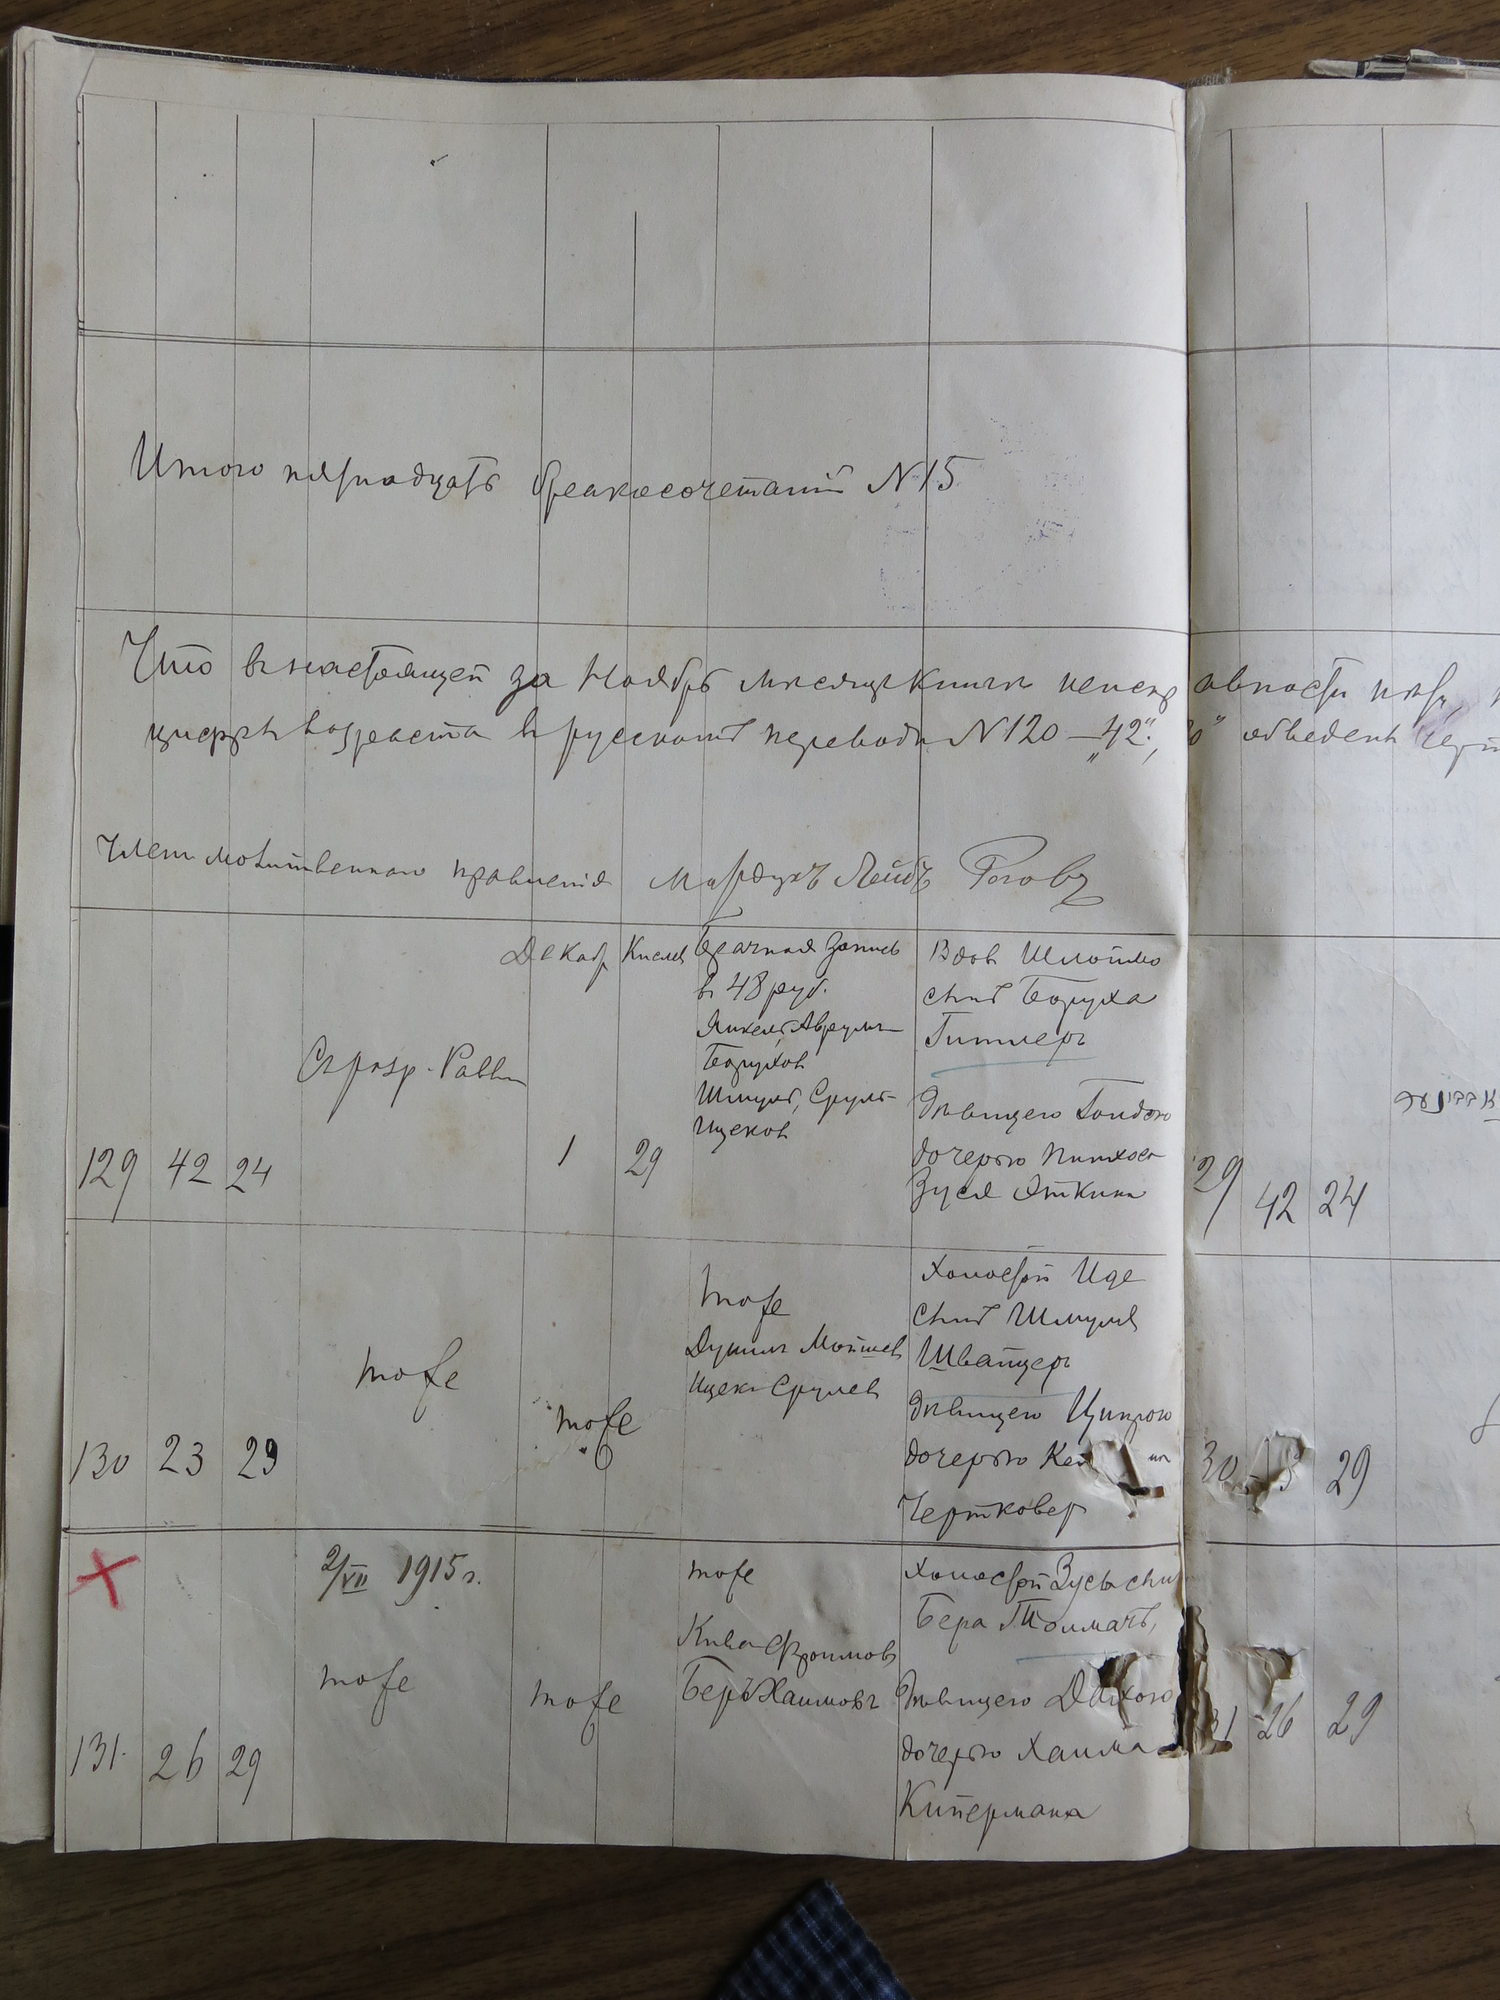 Итого пятнадцать бракосочетаній N 15
Что в настоящей за Ноябрь месяцъ книгѣ неиспр авности нѣтъ,
цифры возраста в русскомъ переводѣ N 120 — „42“, обведены черт
Членъ молитвеннаго правленія Мордухъ Лейбъ
Декабр Кислев
129 42 24
Строср. Равви
1 29
Брачная запись
в 48 руб.
Янкель, Аврумъ-
Борухов
Шмуль, Сруль-
Ицеков
Вдов Шлойма
сынъ Боруха
Гитлеръ
дѣвицею Голдою
дочерью Пинхоса
Зуся Эткина
29 42 24
130 23 29
тоже
тоже
тоже
Душилъ Мойшев
Ицекъ Срулев
холостой Иде
сынъ Шмуля
Швайцеръ
дѣвицею Ципрою
дочерью
Чертковер
30 29
2/VII 1915 г.
131 26 29
тоже
тоже
тоже
Кива Фроимов
Беръ Хаимовъ
холостой Зусь сын
Бера Толмачъ,
дѣвицею
дочерью Хаима
Кипермана
31 26 29